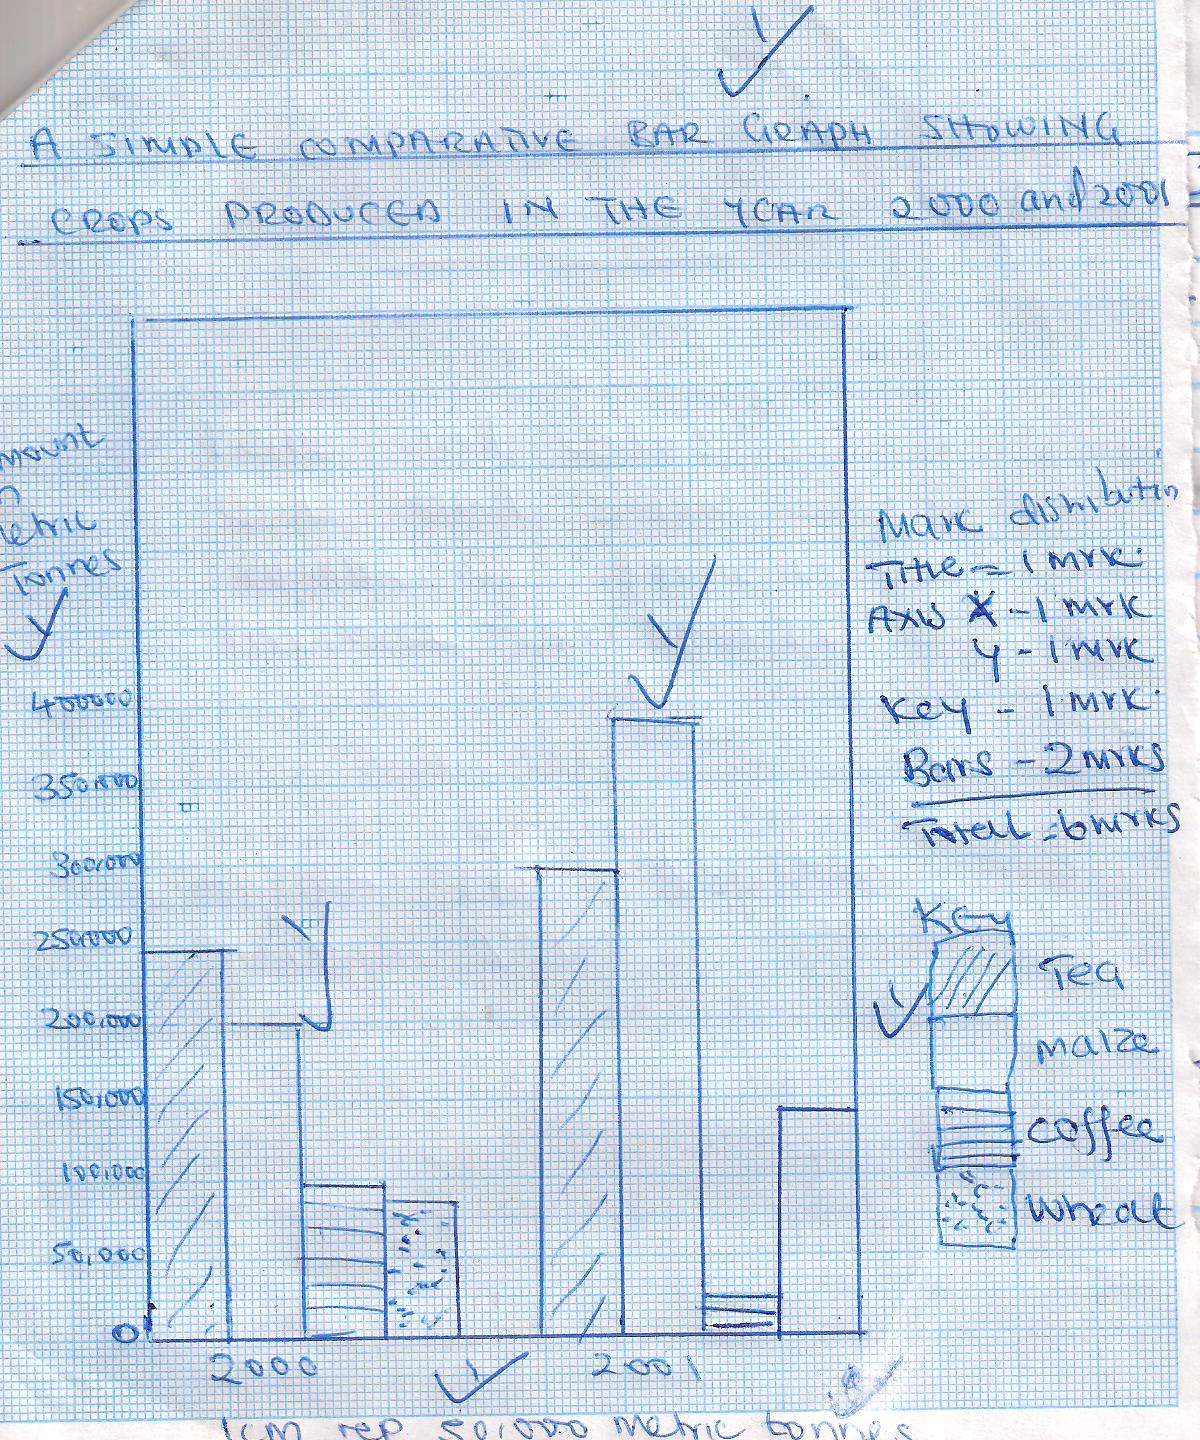 A SIMPLE COMPARATIVE BAR GRAPH SHOWING
CROPS PRODUCED IN THE YEAR 2000 and 2001
mount
n
etric
Tonnes
400000
350,000
300,000
250,000
200,000
150,000
100,000
50,000
0
2000
2001
1cm rep 50,000 metric tonnes
Mark distributin
Title = 1 mrk.
Axis X - 1 mrk
y - 1 mrk
Key - 1 mrk.
Bars - 2 mrks
Total = 6 mrks
Key
Tea
maize
coffee
wheat